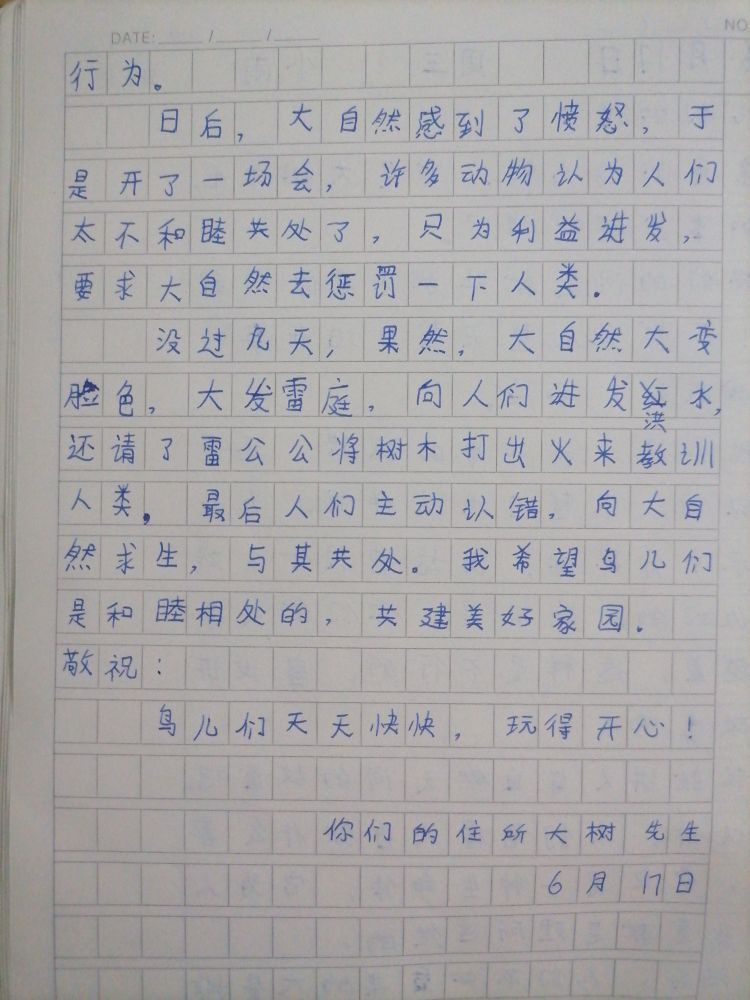 NO
DATE: / /
行为。
日后，大自然感到了愤怒，于
是开了一场会，许多动物认为人们
太不和睦共处了，只为利益进发，
要求大自然去惩罚一下人类。
没过九天，果然，大自然大变
脸色，大发雷庭，向人们进发洪水，
还请了雷公公将树木打出火来教训
人类。最后人们主动认错，向大自
然求生，与其共处。我希望鸟儿们
是和睦相处的，共建美好家园。
敬祝：
鸟儿们天天快快，玩得开心！
你们的住所大树先生
6月17日